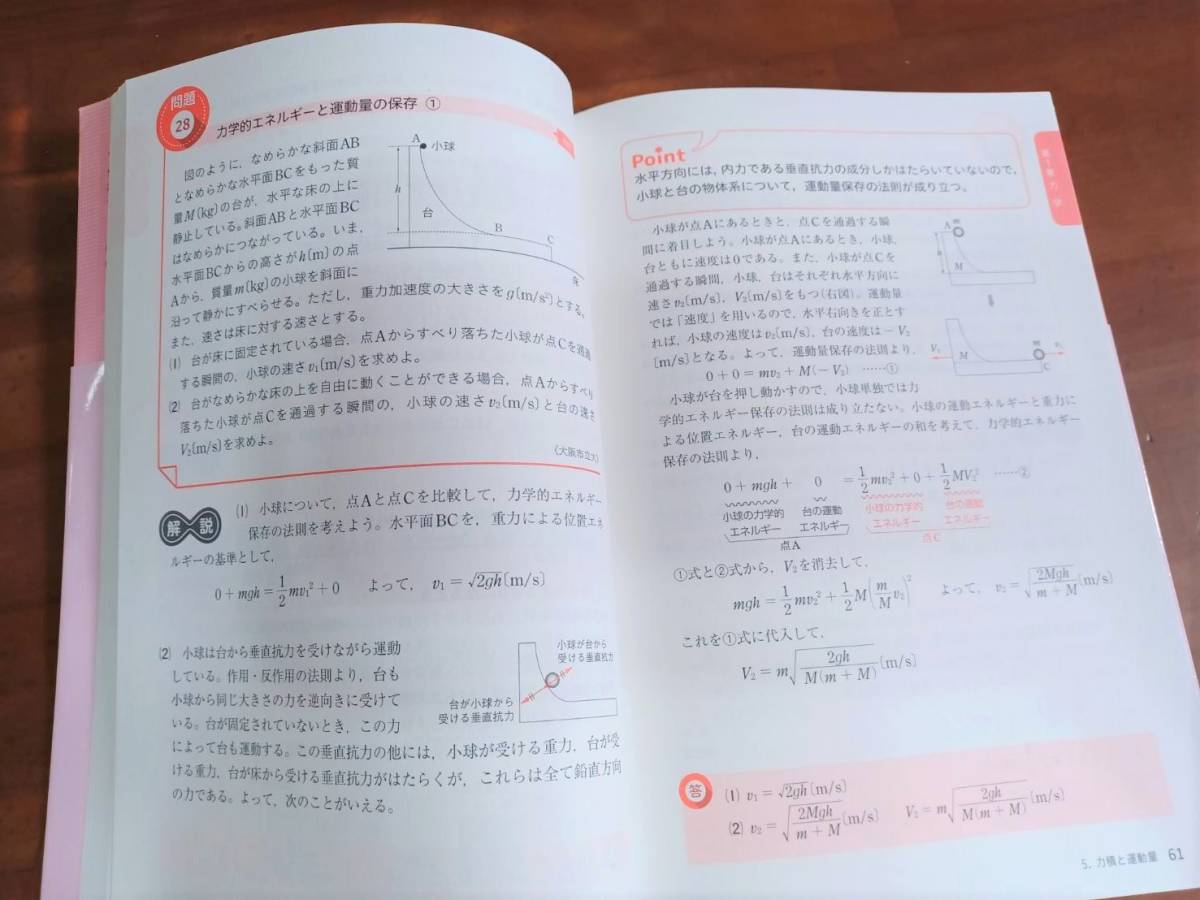 問題
28
力学的エネルギーと運動量の保存 ①
図のように，なめらかな斜面AB
となめらかな水平面BCをもった質
量M〔kg〕の台が，水平な床の上に
静止している。斜面ABと水平面BC
はなめらかにつながっている。いま，
水平面BCからの高さがh〔m〕の点
Aから，質量m〔kg〕の小球を斜面に
沿って静かにすべらせる。ただし，重力加速度の大きさをg〔m/s²〕とする。
また，速さは床に対する速さとする。
(1) 台が床に固定されている場合，点Aからすべり落ちた小球が点Cを通過
する瞬間の，小球の速さv₁〔m/s〕を求めよ。
(2) 台がなめらかな床の上を自由に動くことができる場合，点Aからすべり
落ちた小球が点Cを通過する瞬間の，小球の速さv₂〔m/s〕と台の速さ
V₂〔m/s〕を求めよ。
〈大阪市立大〉
A
小球
h
台
B
C
床
解説
(1) 小球について，点Aと点Cを比較して，力学的エネルギー
保存の法則を考えよう。水平面BCを，重力による位置エネ
ルギーの基準として，
0+mgh=1/2mv₁²+0 よって， v₁=√2gh〔m/s〕
(2) 小球は台から垂直抗力を受けながら運動
している。作用・反作用の法則より，台も
小球から同じ大きさの力を逆向きに受けて
いる。台が固定されていないとき，この力
によって台も運動する。この垂直抗力の他には，小球が受ける重力，台が受
ける重力，台が床から受ける垂直抗力がはたらくが，これらは全て鉛直方向
の力である。よって，次のことがいえる。
小球が台から
受ける垂直抗力
台が小球から
受ける垂直抗力
Point
水平方向には，内力である垂直抗力の成分しかはたらいていないので，
小球と台の物体系について，運動量保存の法則が成り立つ。
第1章 力学
小球が点Aにあるときと，点Cを通過する瞬
間に着目しよう。小球が点Aにあるとき，小球，
台ともに速度は0である。また，小球が点Cを
通過する瞬間，小球，台はそれぞれ水平方向に
速さv₂〔m/s〕，V₂〔m/s〕をもつ(右図)。運動量
では「速度」を用いるので，水平右向きを正とす
れば，小球の速度はv₂〔m/s〕，台の速度は−V₂
〔m/s〕となる。よって，運動量保存の法則より，
0+0=mv₂+M(−V₂) ……①
A
m
h
M
⇓
V₂
M
m
v₂
C
小球が台を押し動かすので，小球単独では力
学的エネルギー保存の法則は成り立たない。小球の運動エネルギーと重力に
よる位置エネルギー，台の運動エネルギーの和を考えて，力学的エネルギー
保存の法則より，
0+mgh+ 0 =1/2mv₂²+0+1/2MV₂² ……②
小球の力学的エネルギー 台の運動エネルギー 小球の力学的エネルギー 台の運動エネルギー
点A 点C
①式と②式から，V₂を消去して，
mgh=1/2mv₂²+1/2M(m/M v₂)² よって， v₂=√(2Mgh/(m+M))〔m/s〕
これを①式に代入して，
V₂=m√(2gh/(M(m+M)))〔m/s〕
答
(1) v₁=√2gh〔m/s〕
(2) v₂=√(2Mgh/(m+M))〔m/s〕 V₂=m√(2gh/(M(m+M)))〔m/s〕
5. 力積と運動量 61